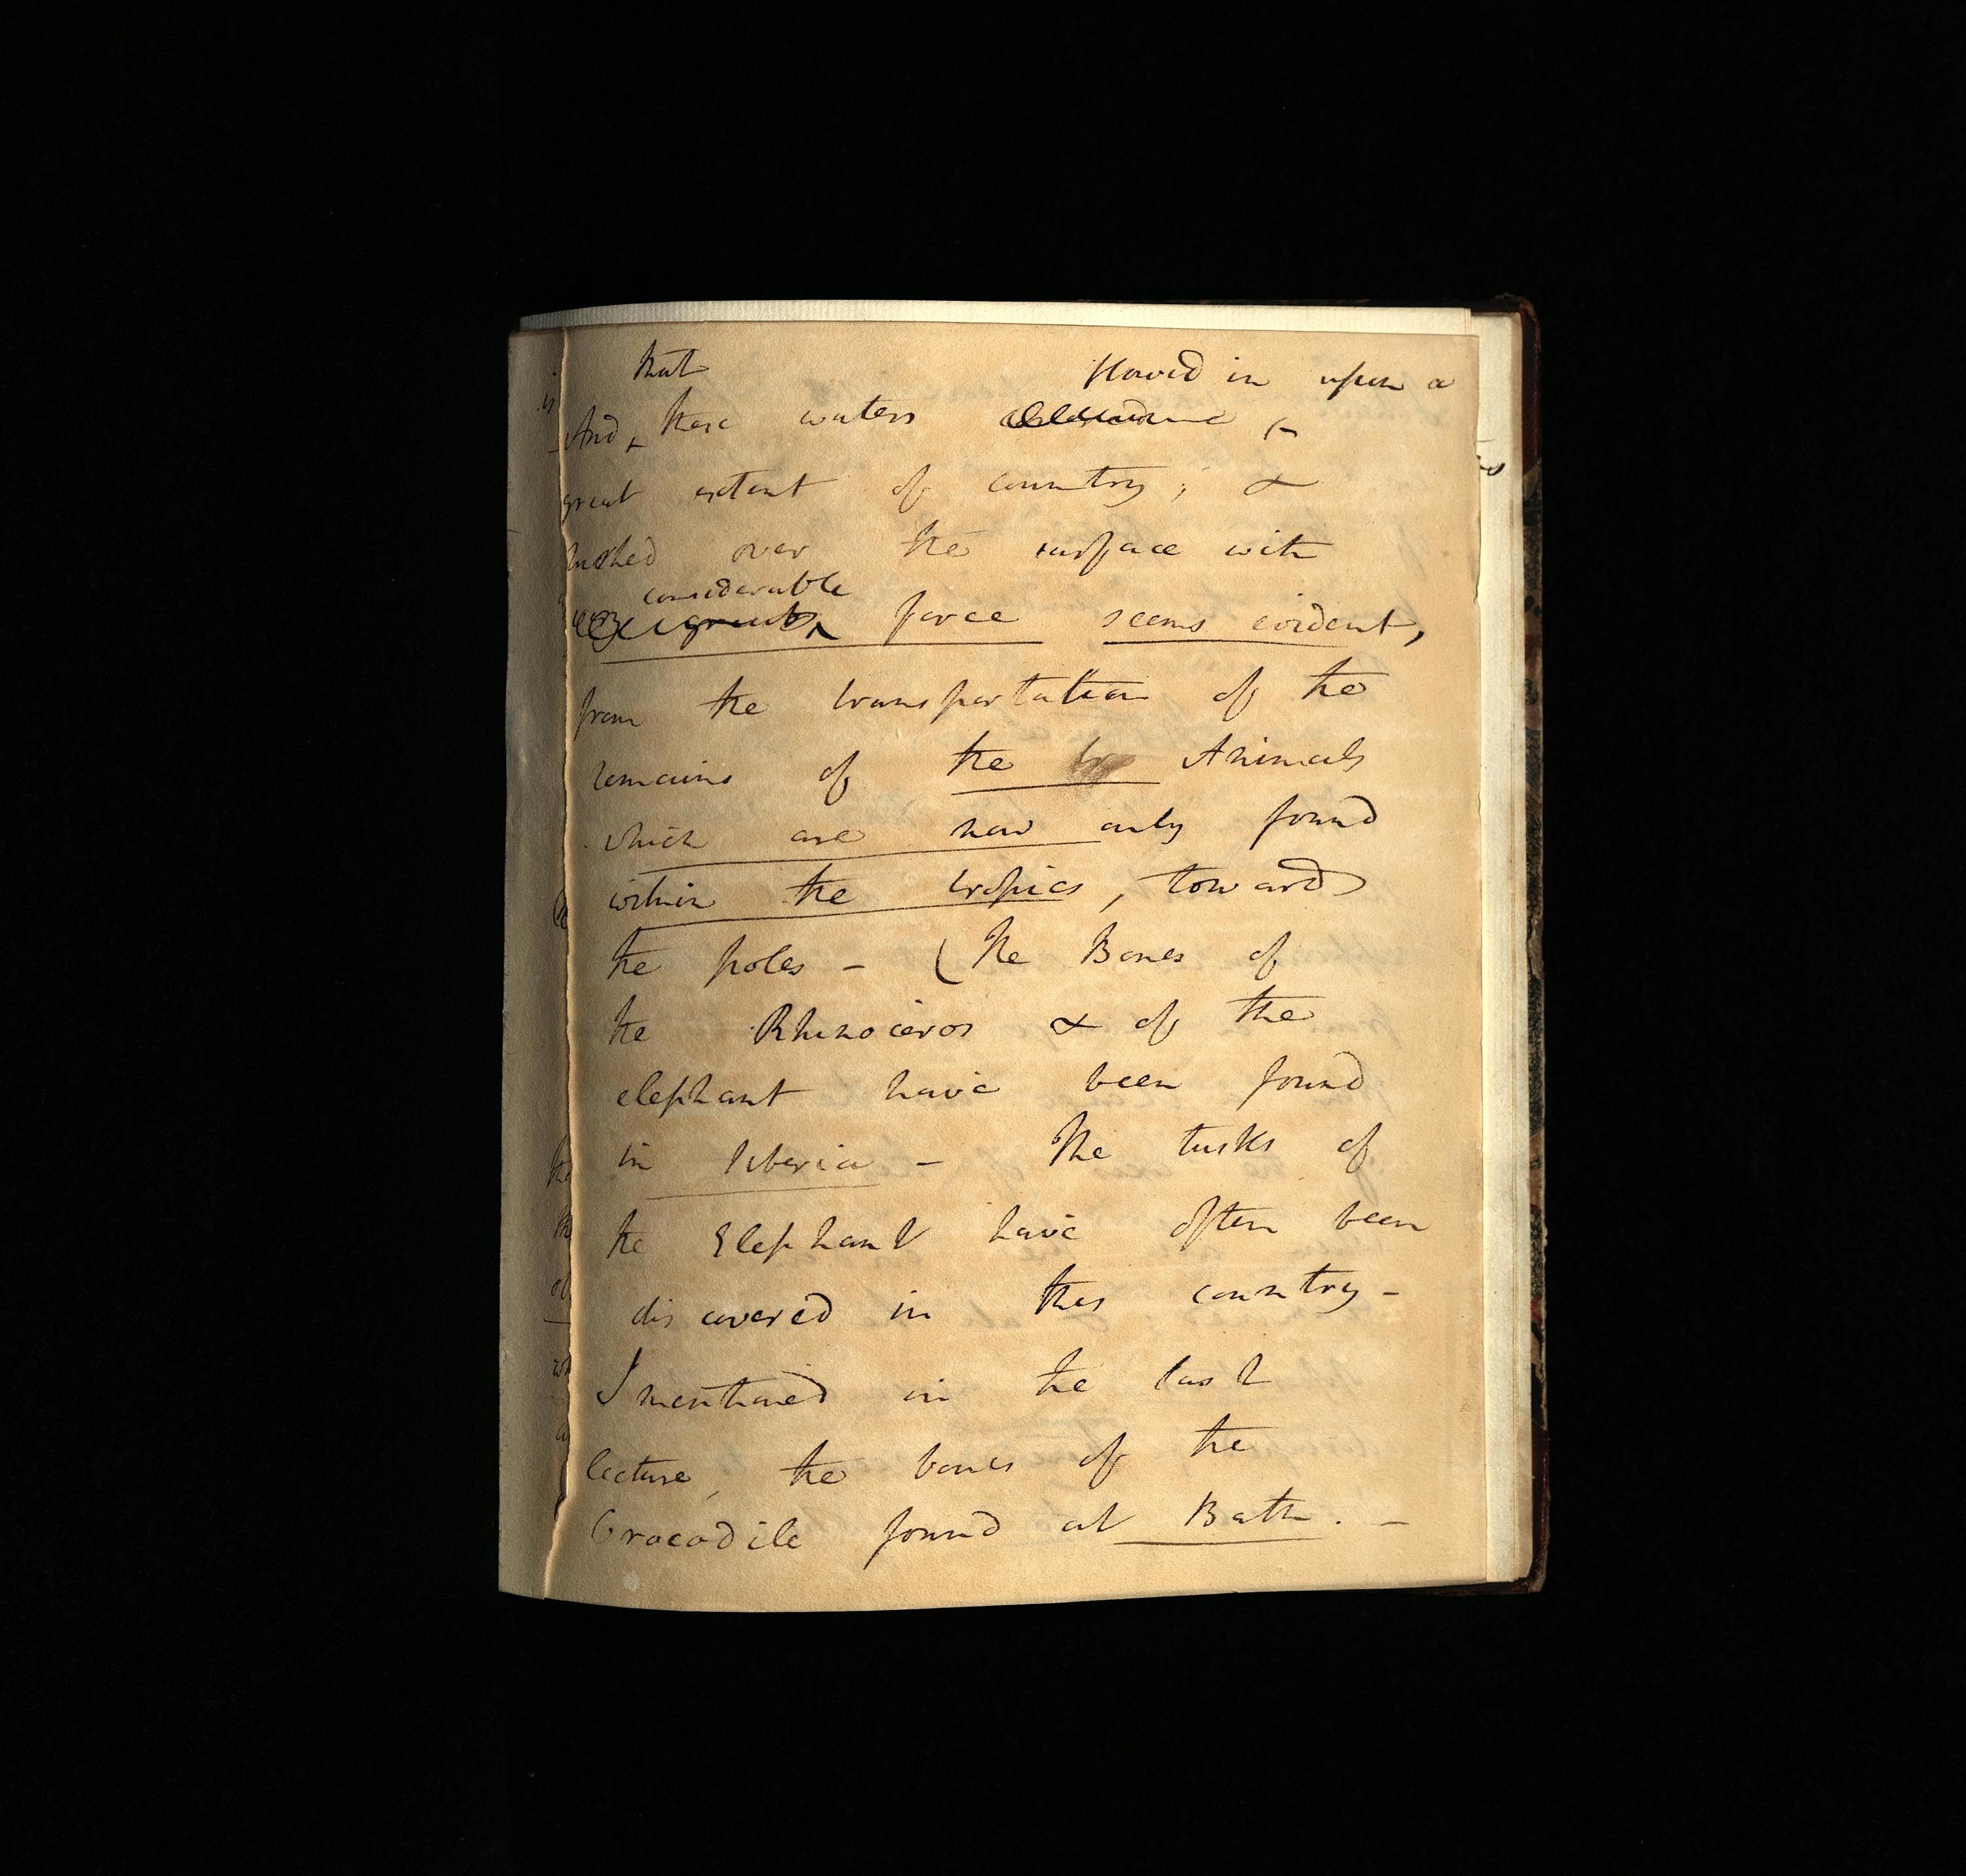 that flowed in upon a
And these waters
great extent of country; &
rushed over the surface with
considerable
very great force seems evident,
from the transportation of the
remains of the tr Animals
which are now only found
within the tropics, toward
the poles – (The Bones of
the Rhinoceros & of the
elephant have been found
in Siberia – The tusks of
the Elephant have often been
discovered in this country –
I mentioned in the last
lecture, the bones of the
Crocodile found at Bath. –